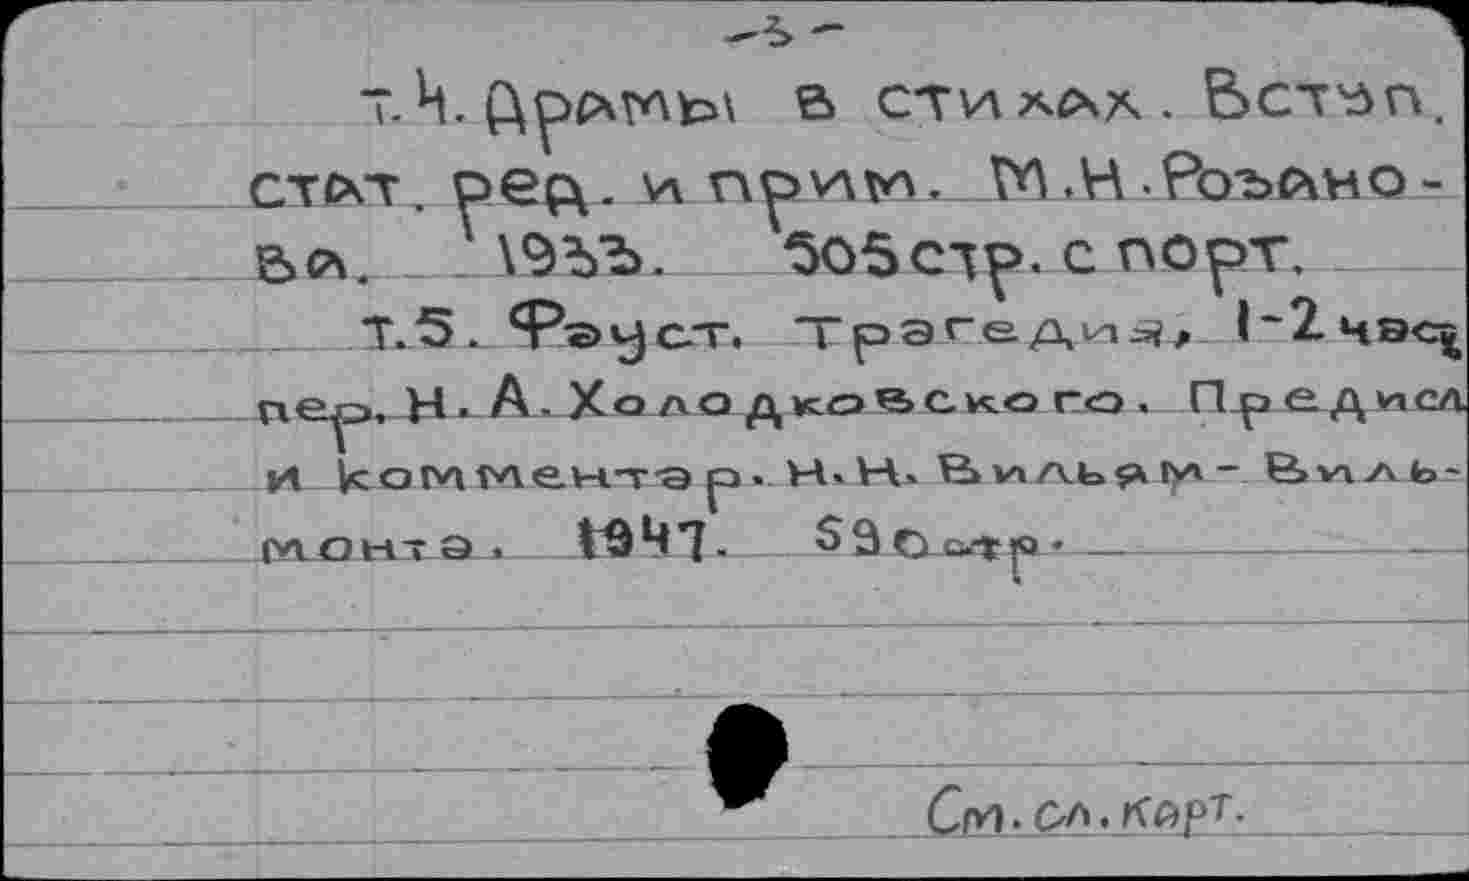 -3-
т.4. Драмы в стихах. Вступ.
стат. ред. и прим. М.Н.Розано-
ва. 1933. 505стр. с порт.
т.5. Фауст. Трагедия, 1-2 час.
пер. Н.А.Холодковского. Предисл.
и комментар. Н.Н. Вильям- Виль-
монта. 1947. 590стр.
См. сл. карт.